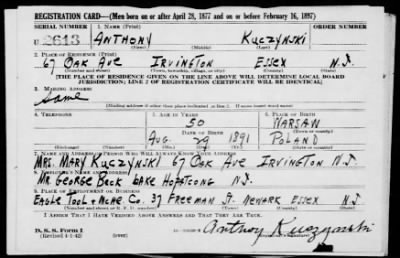 REGISTRATION CARD—(Men born on or after April 28, 1877 and on or before February 16, 1897)
SERIAL NUMBER 1. NAME (Print) ORDER NUMBER
U 2613 ANTHONY KUCZYNSKI
(First) (Middle) (Last)
2. PLACE OF RESIDENCE (Print)
67 OAK AVE IRVINGTON ESSEX N.J.
(Number and street) (Town, township, village, or city) (County) (State)
[THE PLACE OF RESIDENCE GIVEN ON THE LINE ABOVE WILL DETERMINE LOCAL BOARD
JURISDICTION; LINE 2 OF REGISTRATION CERTIFICATE WILL BE IDENTICAL]
3. MAILING ADDRESS
Same
[Mailing address if other than place indicated on line 2. If same insert word same]
4. TELEPHONE 5. AGE IN YEARS 6. PLACE OF BIRTH
50 WARSAW
DATE OF BIRTH (Town or county)
AUG. 29 1891 POLAND
(Exchange) (Number) (Mo.) (Day) (Yr.) (State or country)
7. NAME AND ADDRESS OF PERSON WHO WILL ALWAYS KNOW YOUR ADDRESS
MRS. MARY KUCZYNSKI 67 OAK AVE IRVINGTON N.J.
8. EMPLOYER'S NAME AND ADDRESS
MR. GEORGE BOCK LAKE HOPATCONG N.J.
9. PLACE OF EMPLOYMENT OR BUSINESS
EAGLE TOOL + MCHE CO. 37 FREEMAN ST. NEWARK ESSEX N.J.
(Number and street or R. F. D. number) (Town) (County) (State)
I AFFIRM THAT I HAVE VERIFIED ABOVE ANSWERS AND THAT THEY ARE TRUE.
D. S. S. Form 1
(Revised 4-1-42) (over) Anthony Kuczynski